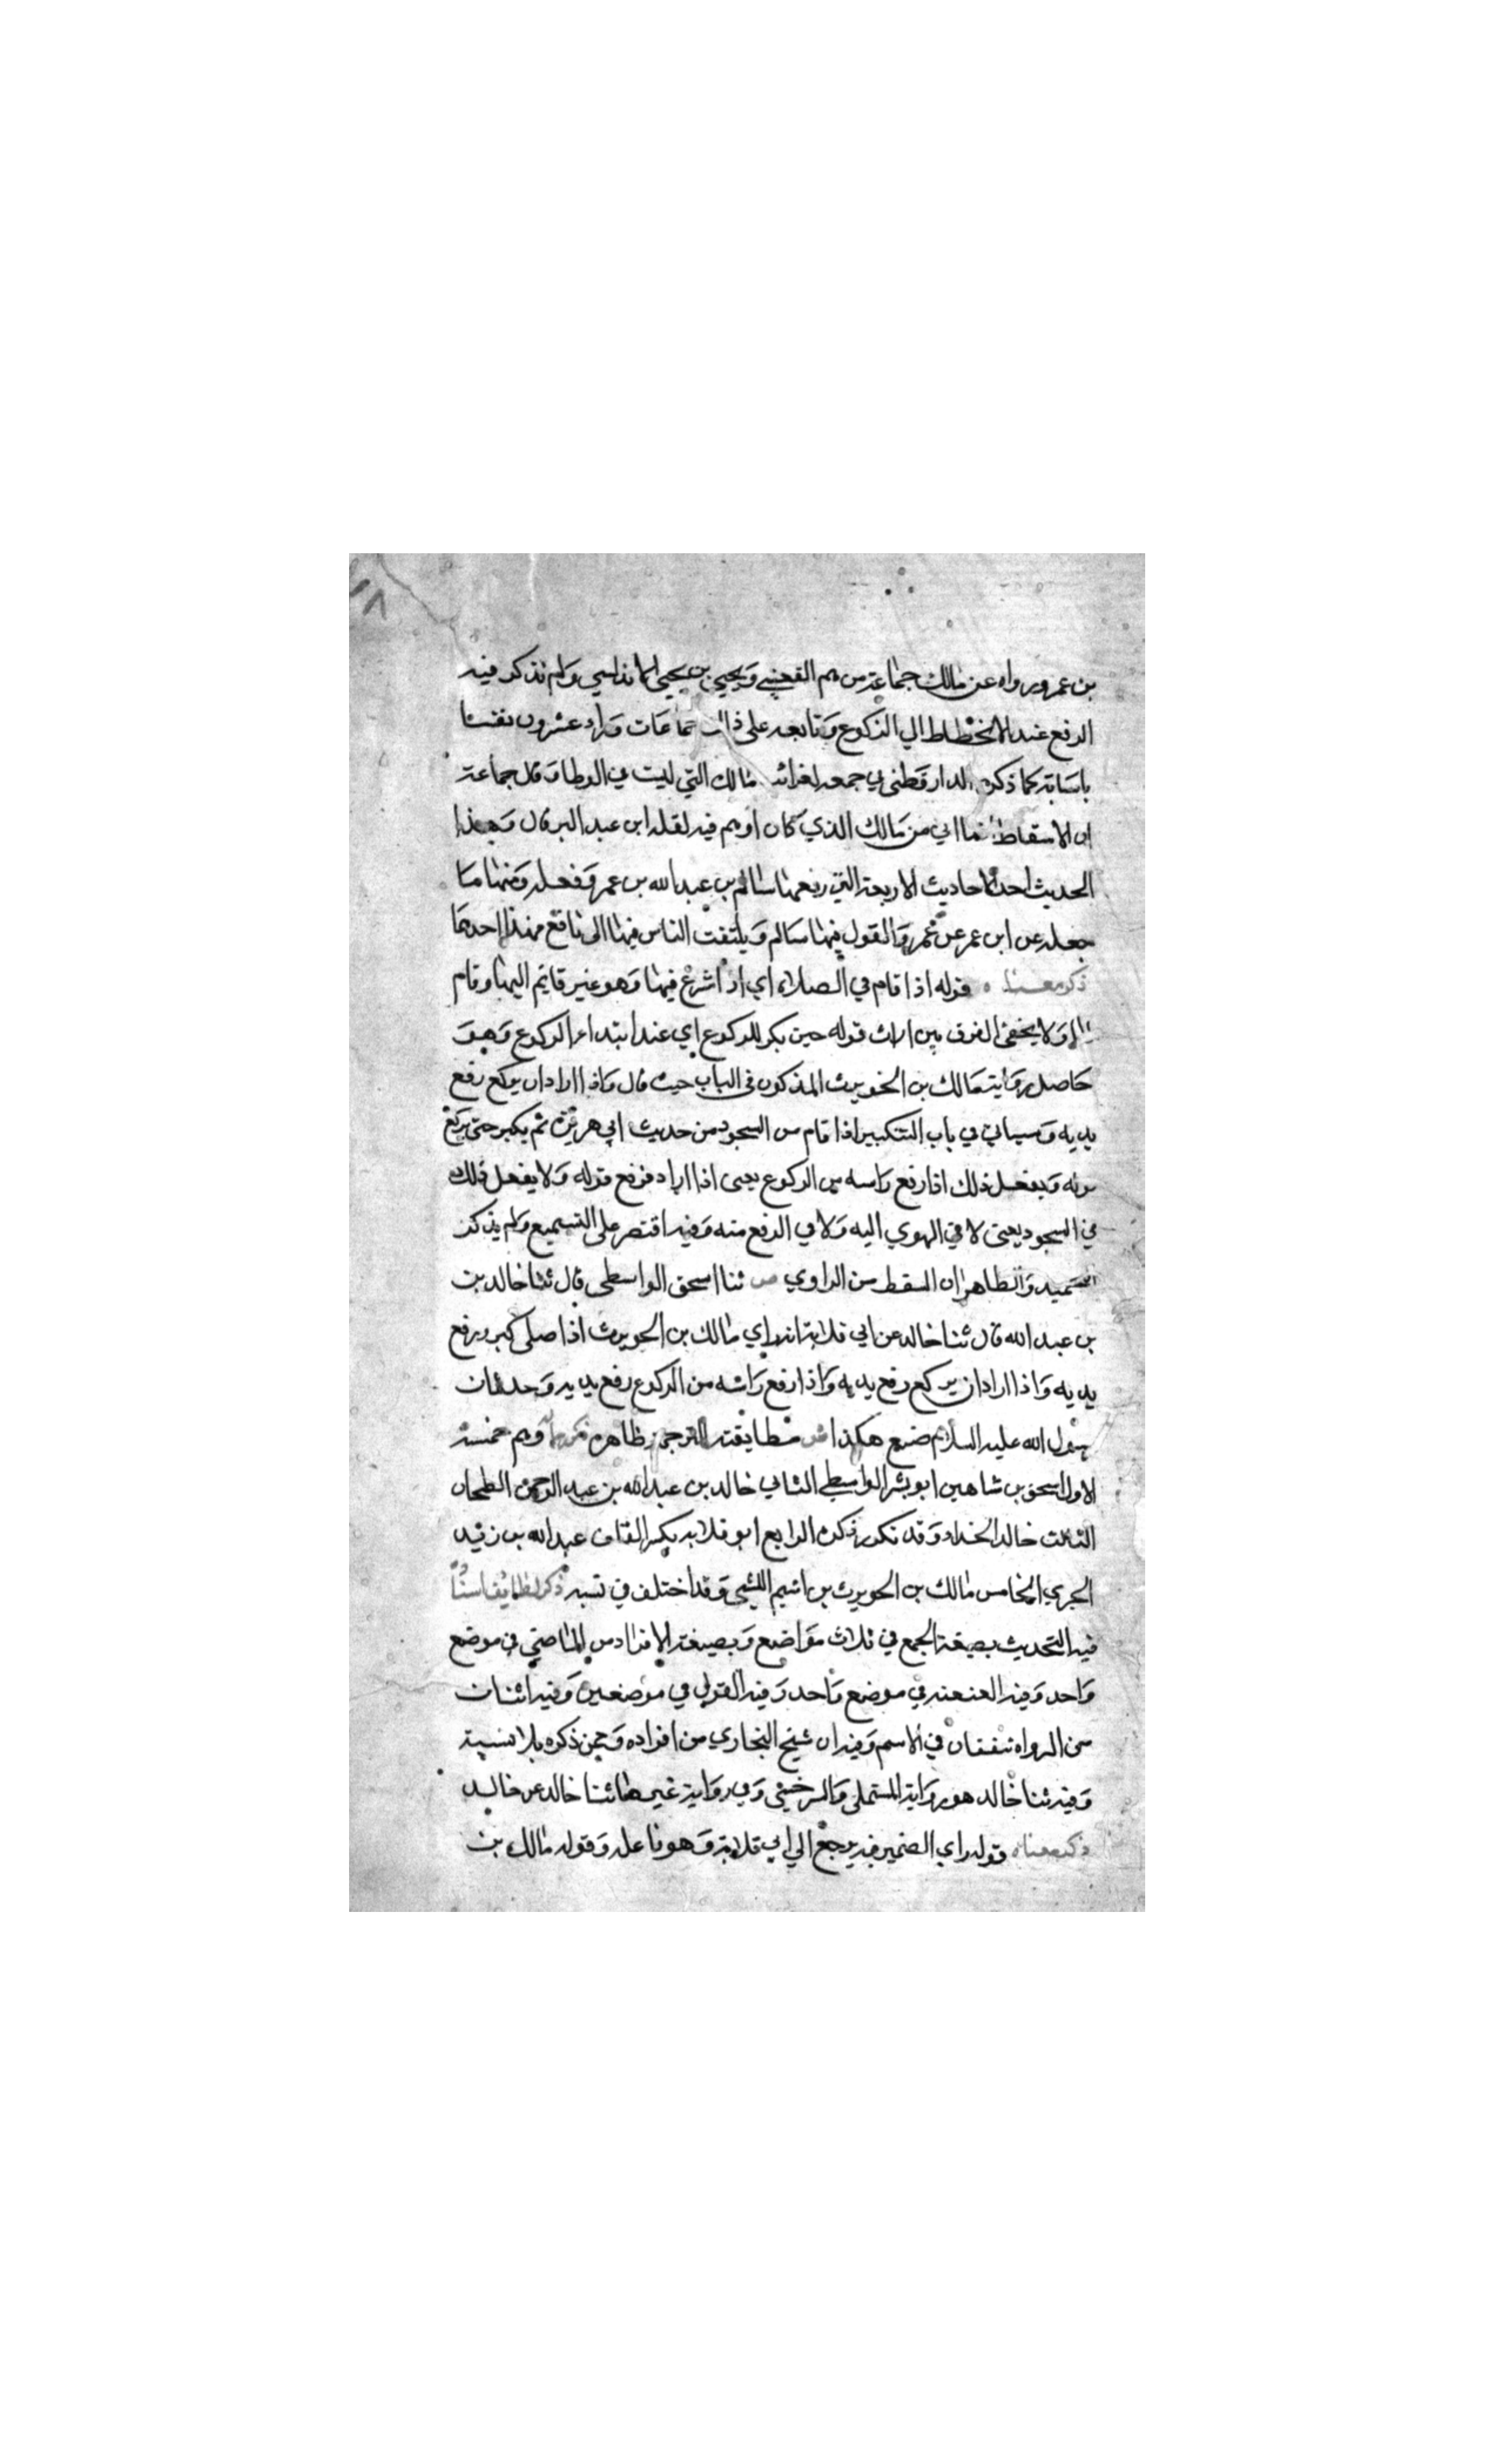 بن عمر ورواه عن مالك جماعة منهم القعنبي ويحيى بن يحيى الاندلسي ولم يذكر فيه
الرفع عند الانحطاط الي الركوع وتابعه على ذلك جماعات وزاد عشرون نفسا
باسانيد كما ذكره الدارقطني في جمعه لغرائب مالك التي ليست في الموطا وقال جماعة
ان الاسقاط انما اتي من مالك الذي كان اوهم فيه نقله ابن عبد البر قال وهذا
الحديث احد الاحاديث الاربعة التي رفعها سالم بن عبد الله بن عمر وفعله ومنها ما
جعله عن ابن عمر عن عمر والقول فيها سالم ويلتفت الناس فيها الى نافع فهذا احدها
ذكر معناه قوله اذا قام في الصلاة اي اذا شرع فيها وهو غير قايم اليها وقام
ولا يخفى الفرق بين قوله حين يكبر للركوع اي عند ابتداء الركوع وهو
حاصل رواية مالك بن الحويرث المذكور في الباب حيث قال واذا اراد ان يركع رفع
يديه وسياتي في باب التكبير اذا قام من السجود من حديث ابي هريرة ثم يكبر حتى يركع
قوله ويفعل ذلك اذا رفع راسه من الركوع يعني اذا اراد فرفع قوله ولا يفعل ذلك
في السجود يعني لا في الهوي اليه ولا في الرفع منه وفيه اقتصر على التسميع ولم يذكر
التحميد والظاهر ان السقط من الراوي ص ثنا اسحق الواسطي قال ثنا خالد بن
بن عبد الله قال ثنا خالد عن ابي قلابة انه راي مالك بن الحويرث اذا صلى كبر ورفع
يديه واذا اراد ان يركع رفع يديه واذا رفع راسه من الركوع رفع يديه وحدث ان
رسول الله عليه السلام صنع هكذا ش مطابقته للترجمة ظاهرة ذكر رجاله وهم خمسة
الاول اسحق بن شاهين ابو بشر الواسطي الثاني خالد بن عبد الله بن عبد الرحمن الطحان
الثالث خالد الحذاء وقد تكرر ذكره الرابع ابو قلابه بكسر القاف عبد الله بن زيد
الجرمي الخامس مالك بن الحويرث بن اشيم الليثي وقد اختلف في نسبه ذكر لطايف اسناده
فيه التحديث بصيغة الجمع في ثلاث مواضع وبصيغة الافراد من الماضي في موضع
واحد وفيه العنعنه في موضع واحد وفيه القول في موضعين وفيه اثنان
من الرواه متفقان في الاسم وفيه ان شيخ البخاري من افراده وممن ذكره بلا نسبة
وفيه ثنا خالد هو رواية المستملي والسرخسي وفي رواية غيرهما ثنا خالد عن خالد
ذكر معناه قوله راي الضمير فيه يرجع الي ابي قلابة وهو فاعله وقوله مالك بن